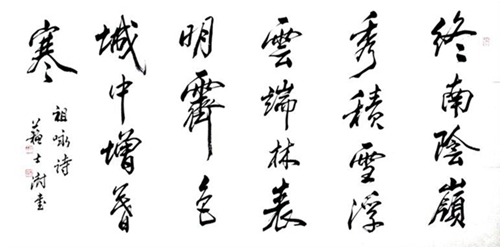 終南陰嶺
秀積雪浮
雲端林表
明霽色
城中增暮
寒
祖咏诗
蘇士澍書